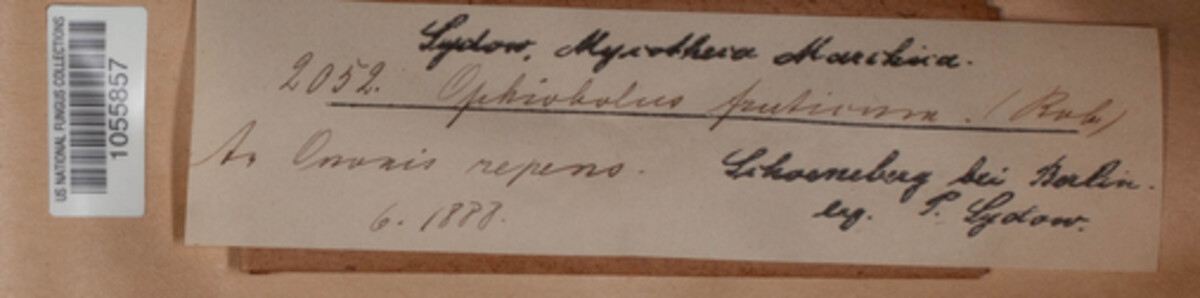 US NATIONAL FUNGUS COLLECTIONS
1055857
Sydow, Mycotheca Marchica.
2052. Ophiobolus fruticum. (Rob.)
An Ononis repens.
6. 1888.
Schoeneberg bei Berlin.
leg. P. Sydow.